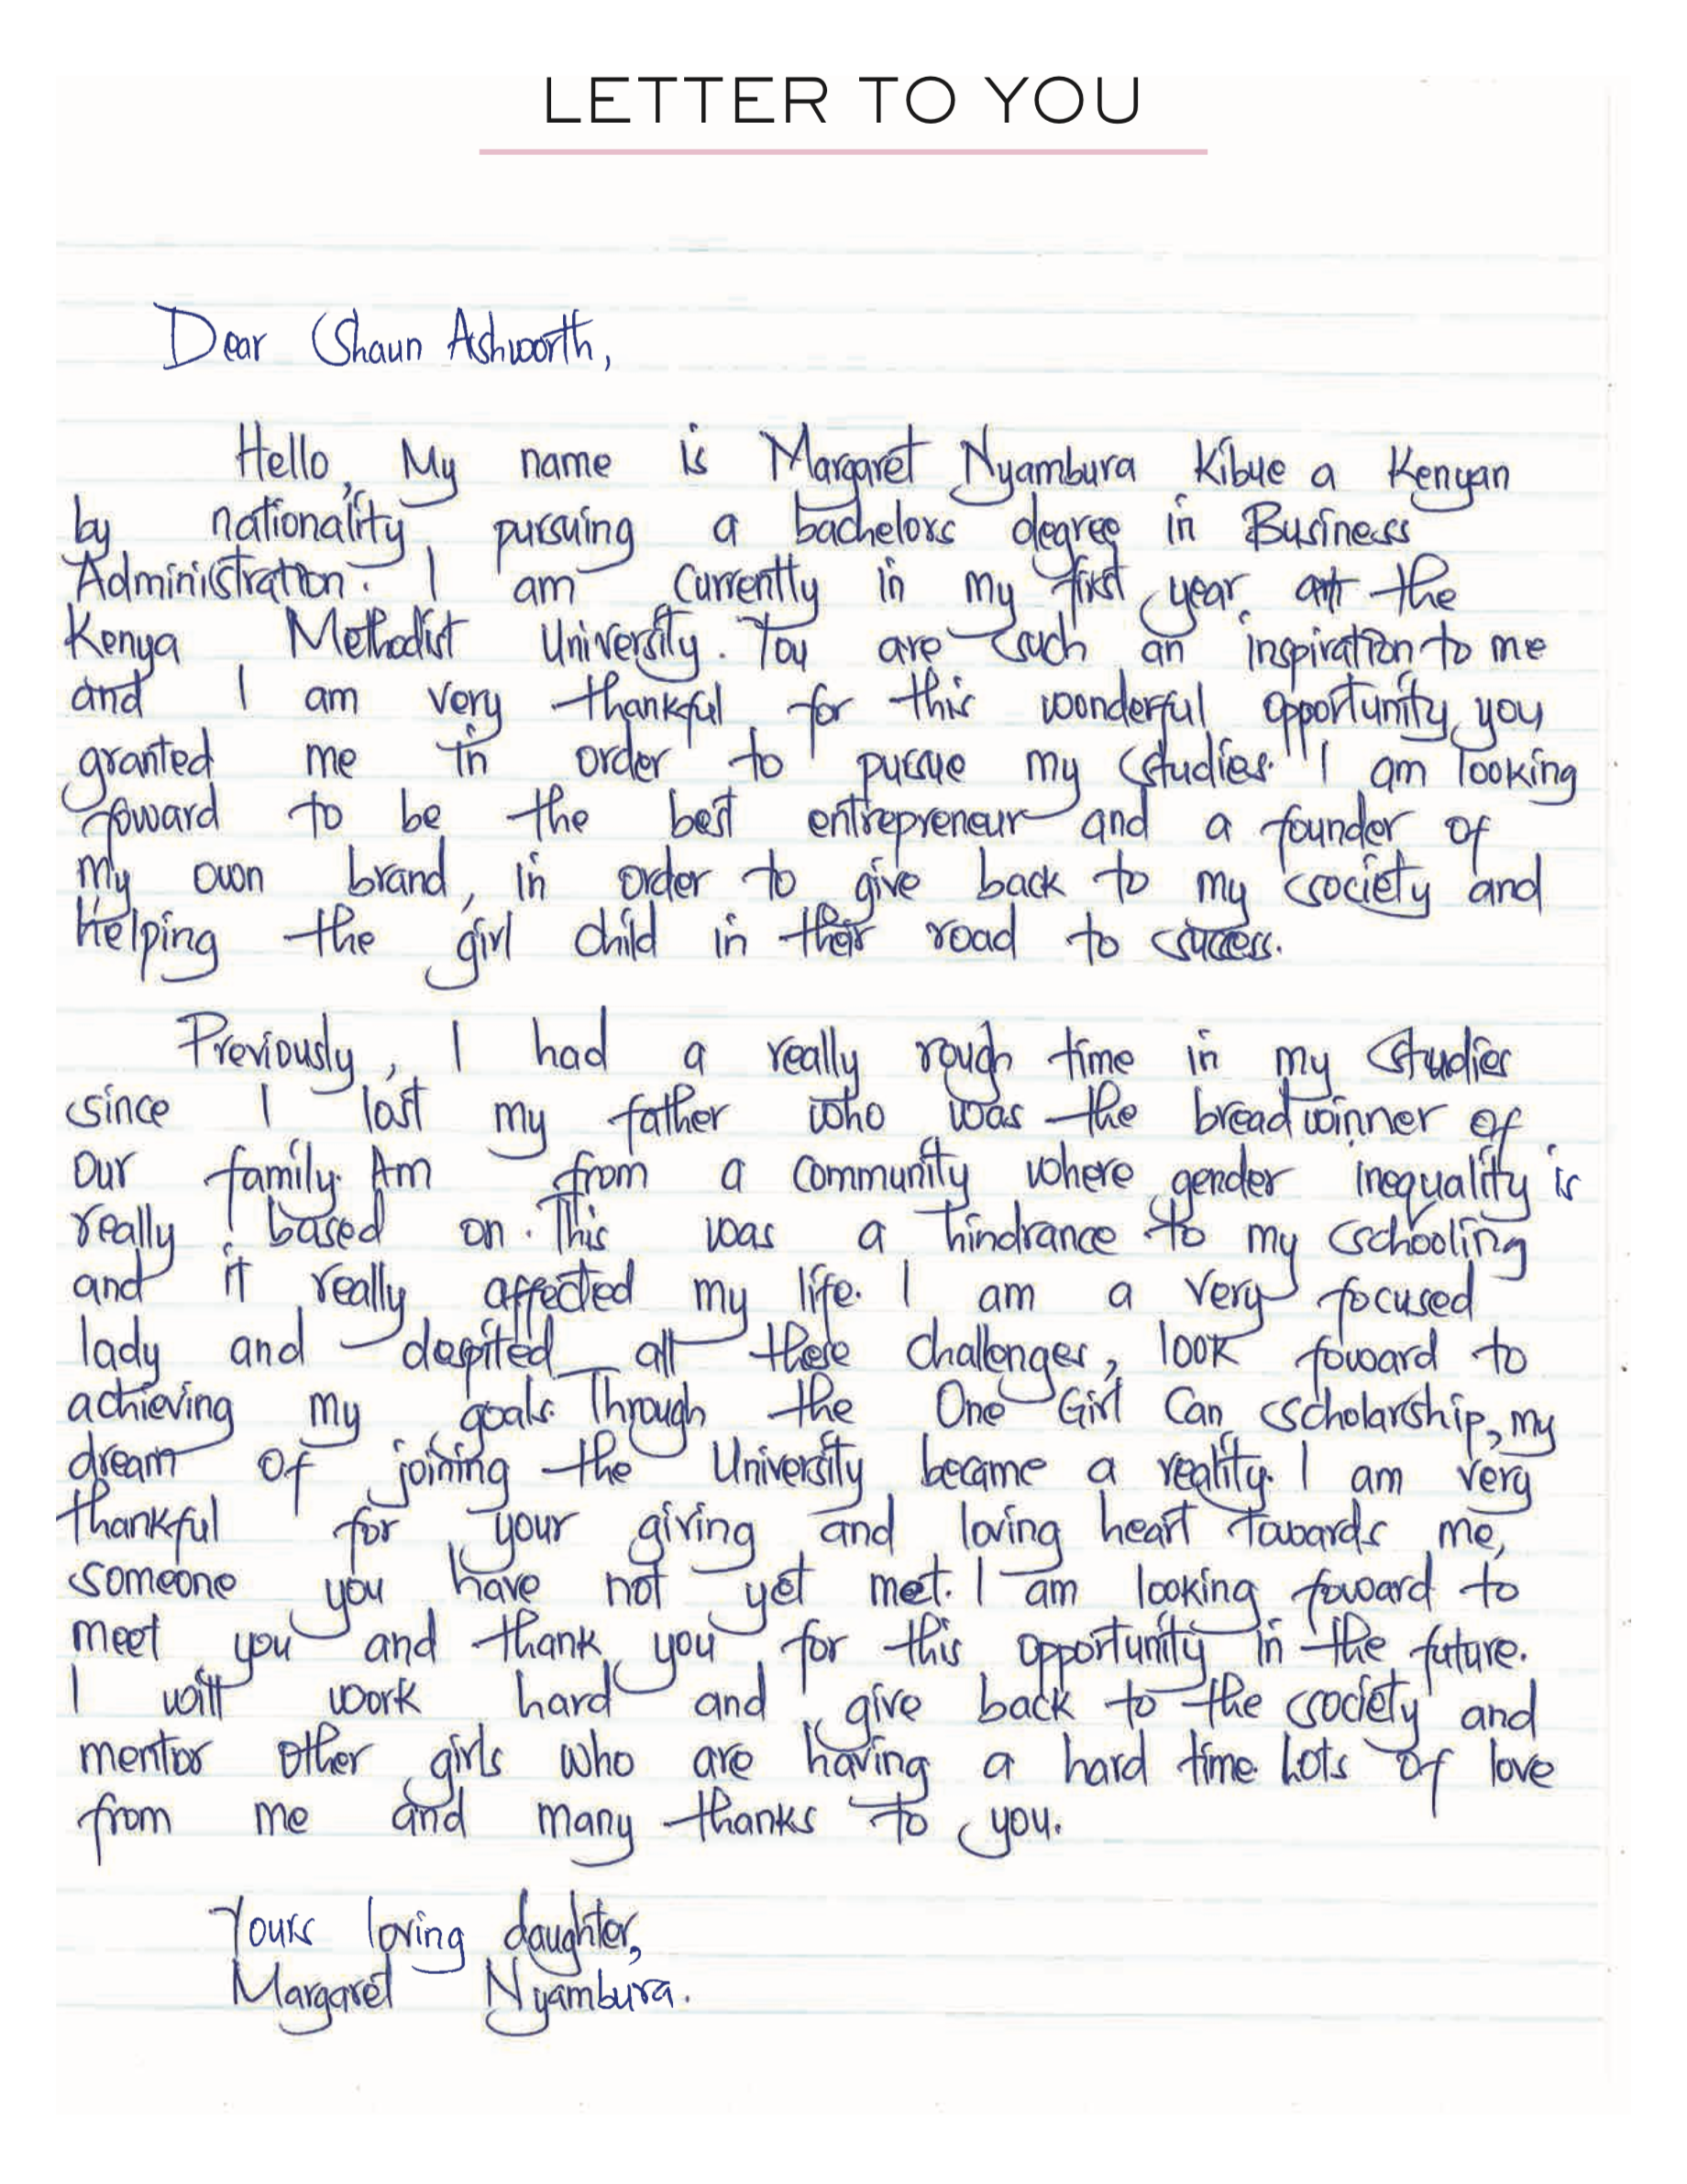 LETTER TO YOU
Dear Shaun Ashworth,
Hello, My name is Margaret Nyambura Kibue a Kenyan
by nationality pursuing a bachelors degree in Business
Administration. I am currently in my first year at the
Kenya Methodist University. You are such an inspiration to me
and I am very thankful for this wonderful opportunity you
granted me in order to pursue my studies. I am looking
foward to be the best entrepreneur and a founder of
my own brand, in order to give back to my society and
helping the girl child in their road to success.
Previously, I had a really rough time in my studies
since I lost my father who was the breadwinner of
our family. Am from a community where gender inequality is
really based on. This was a hindrance to my schooling
and it really affected my life. I am a very focused
lady and despited all these challenges, look foward to
achieving my goals. Through the One Girl Can scholarship, my
dream of joining the University became a reality. I am very
thankful for your giving and loving heart towards me,
someone you have not yet met. I am looking foward to
meet you and thank you for this opportunity in the future.
I will work hard and give back to the society and
mentor other girls who are having a hard time. Lots of love
from me and many thanks to you.
Yours loving daughter,
Margaret Nyambura.